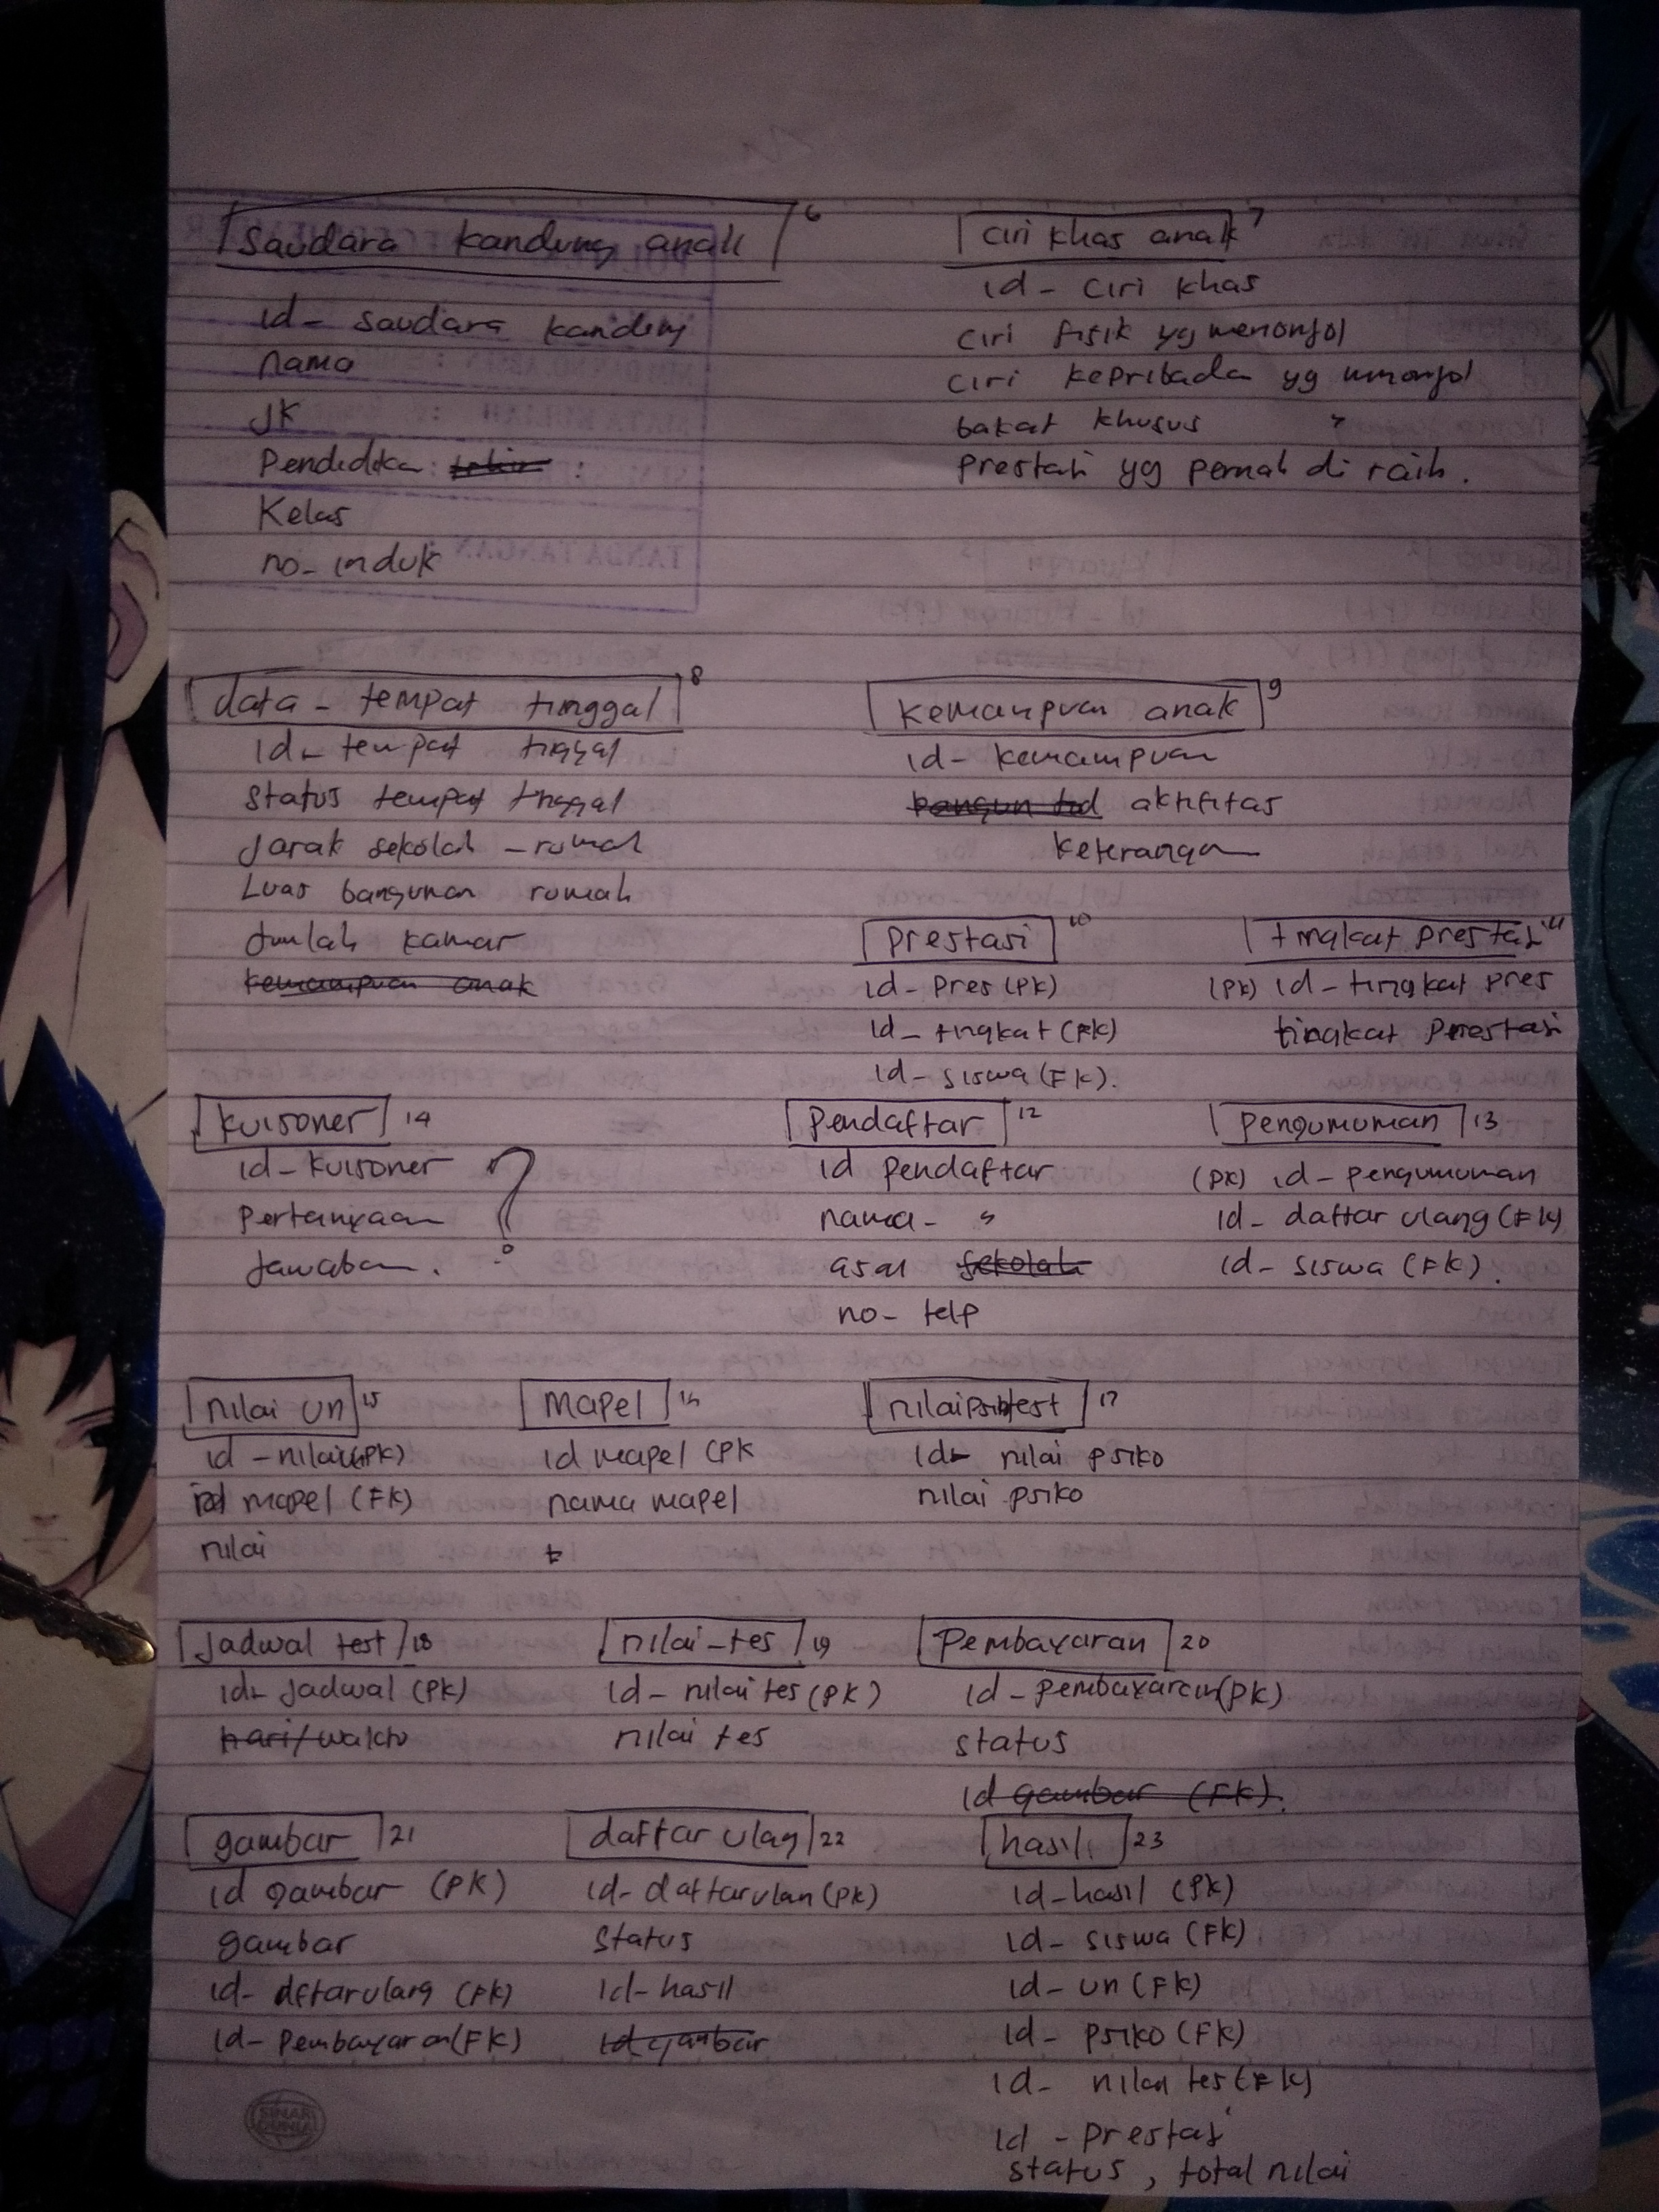 saudara kandung anak 6
id - saudara kandung
nama
JK
Pendidikan :
Kelas
no - induk
ciri khas anak 7
id - ciri khas
ciri fisik yg menonjol
ciri kepribada yg menonjol
bakat khusus "
prestasi yg pernah di raih.
data - tempat tinggal 8
id - tempat tinggal
status tempat tinggal
Jarak sekolah - rumah
Luas bangunan rumah
Jumlah kamar
kemampuan anak
kemampuan anak 9
id - kemampuan
bangun tid aktifitas
keterangan
prestasi 10
id - pres (PK)
id - tingkat (FK)
id - siswa (FK).
tingkat prestasi 11
(PK) id - tingkat pres
tingkat prestasi
kuisoner 14
id - kuisoner ?
Pertanyaan
Jawaban.
Pendaftar 12
id pendaftar
nama - "
asal sekolah
no - telp
Pengumuman 13
(PK) id - pengumuman
id - daftar ulang (FK)
id - siswa (FK).
nilai un 15
id - nilai (PK)
id mapel (FK)
nilai
Mapel 16
id mapel (PK
nama mapel
t
nilai psikotest 17
id - nilai psiko
nilai psiko
Jadwal test 18
id - Jadwal (PK)
hari/waktu
nilai - tes 19
id - nilai tes (PK)
nilai tes
Pembayaran 20
id - pembayaran (PK)
status
id gambar (FK).
gambar 21
id gambar (PK)
gambar
id - dftarulang (FK)
id - Pembayaran (FK)
daftar ulag 22
id - daftarulan (PK)
Status
id - hasil
id gambar
hasil 23
id - hasil (PK)
id - siswa (FK)
id - un (FK)
id - psiko (FK)
id - nilai tes (FK)
id - prestasi
status, total nilai
SINAR
DUNIA